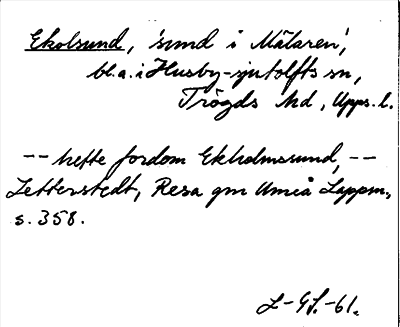 Ekolsund, 'sund i Mälaren',
bl.a. i Husby-Sjutolfts sn,
Trögds hd, Upps. l.
-- hette fordom Ekholmssund, --
Zetterstedt, Resa gm Umeå Lappm.,
s. 358.